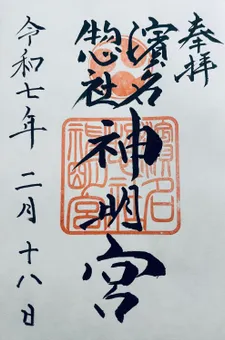 奉拝
濱名
惣社
神明宮
令和七年 二月 十八日